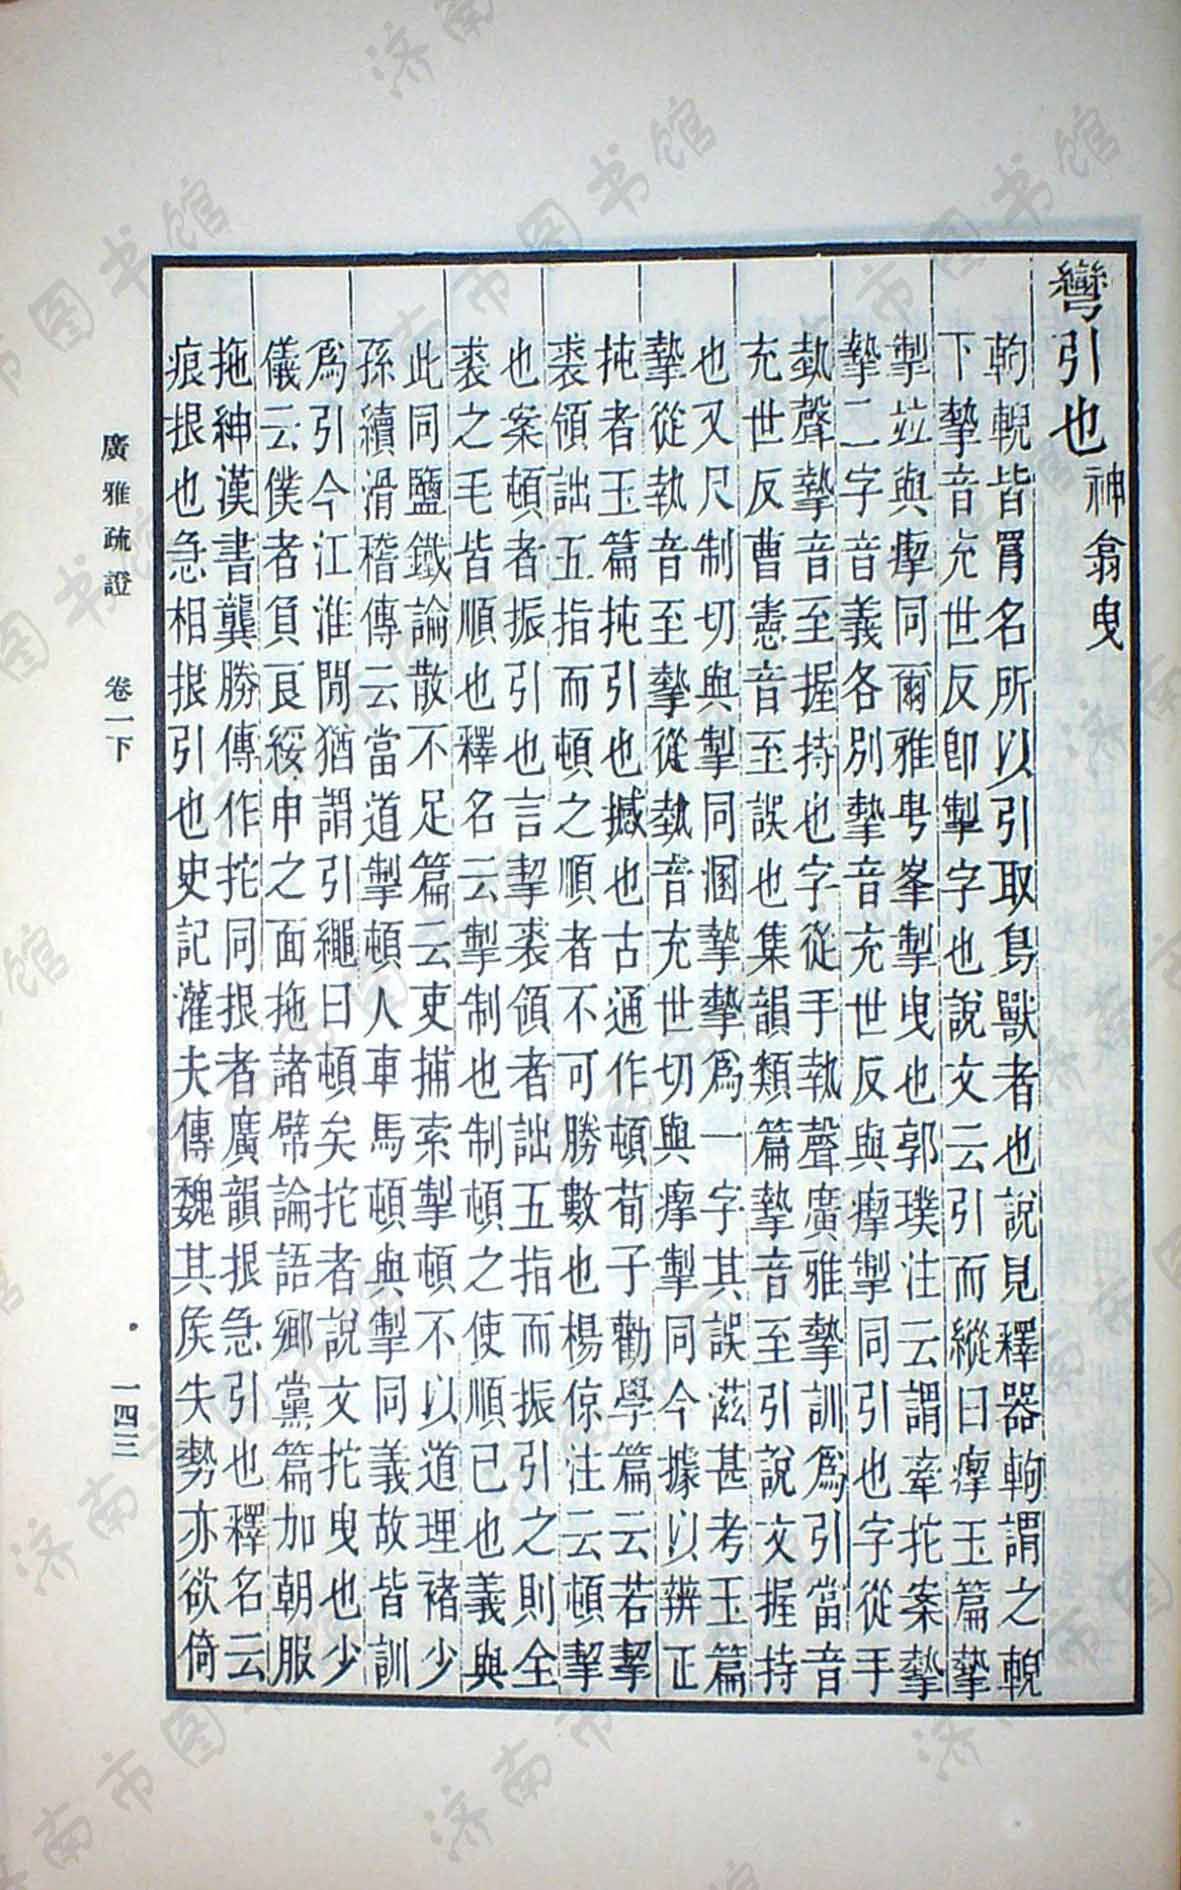 彎引也神翕曳
䡓輗皆罥名所以引取鳥獸者也說見釋器䡓謂之輗
下摰音充世反卽掣字也說文云引而縱曰瘛玉篇摰
掣竝與瘛同爾雅甹夆掣曳也郭璞注云謂牽拕案摰
摯二字音義各別摰音充世反與瘛掣同引也字從手
埶聲摯音至握持也字從手執聲廣雅摰訓爲引當音
充世反曹憲音至誤也集韻類篇摯音至引說文握持
也又尺制切與掣同溷摯摰爲一字其誤滋甚考玉篇
摯從執音至摰從埶音充世切與瘛掣同今據以辨正
扽者玉篇扽引也撼也古通作頓荀子勸學篇云若挈
裘領詘五指而頓之順者不可勝數也楊倞注云頓挈
也案頓者振引也言挈裘領者詘五指而振引之則全
裘之毛皆順也釋名云掣制也制頓之使順已也義與
此同鹽鐵論散不足篇云吏捕索掣頓不以道理褚少
孫續滑稽傳云當道掣頓人車馬頓與掣同義故皆訓
爲引今江淮閒猶謂引繩曰頓矣拕者說文拕曳也少
儀云僕者負良綏申之面拖諸幦論語鄉黨篇加朝服
拖紳漢書龔勝傳作拕同拫者廣韻拫急引也釋名云
痕拫也急相拫引也史記灌夫傳魏其矦失勢亦欲倚
廣雅疏證 卷一下
一四三
济南市图书馆